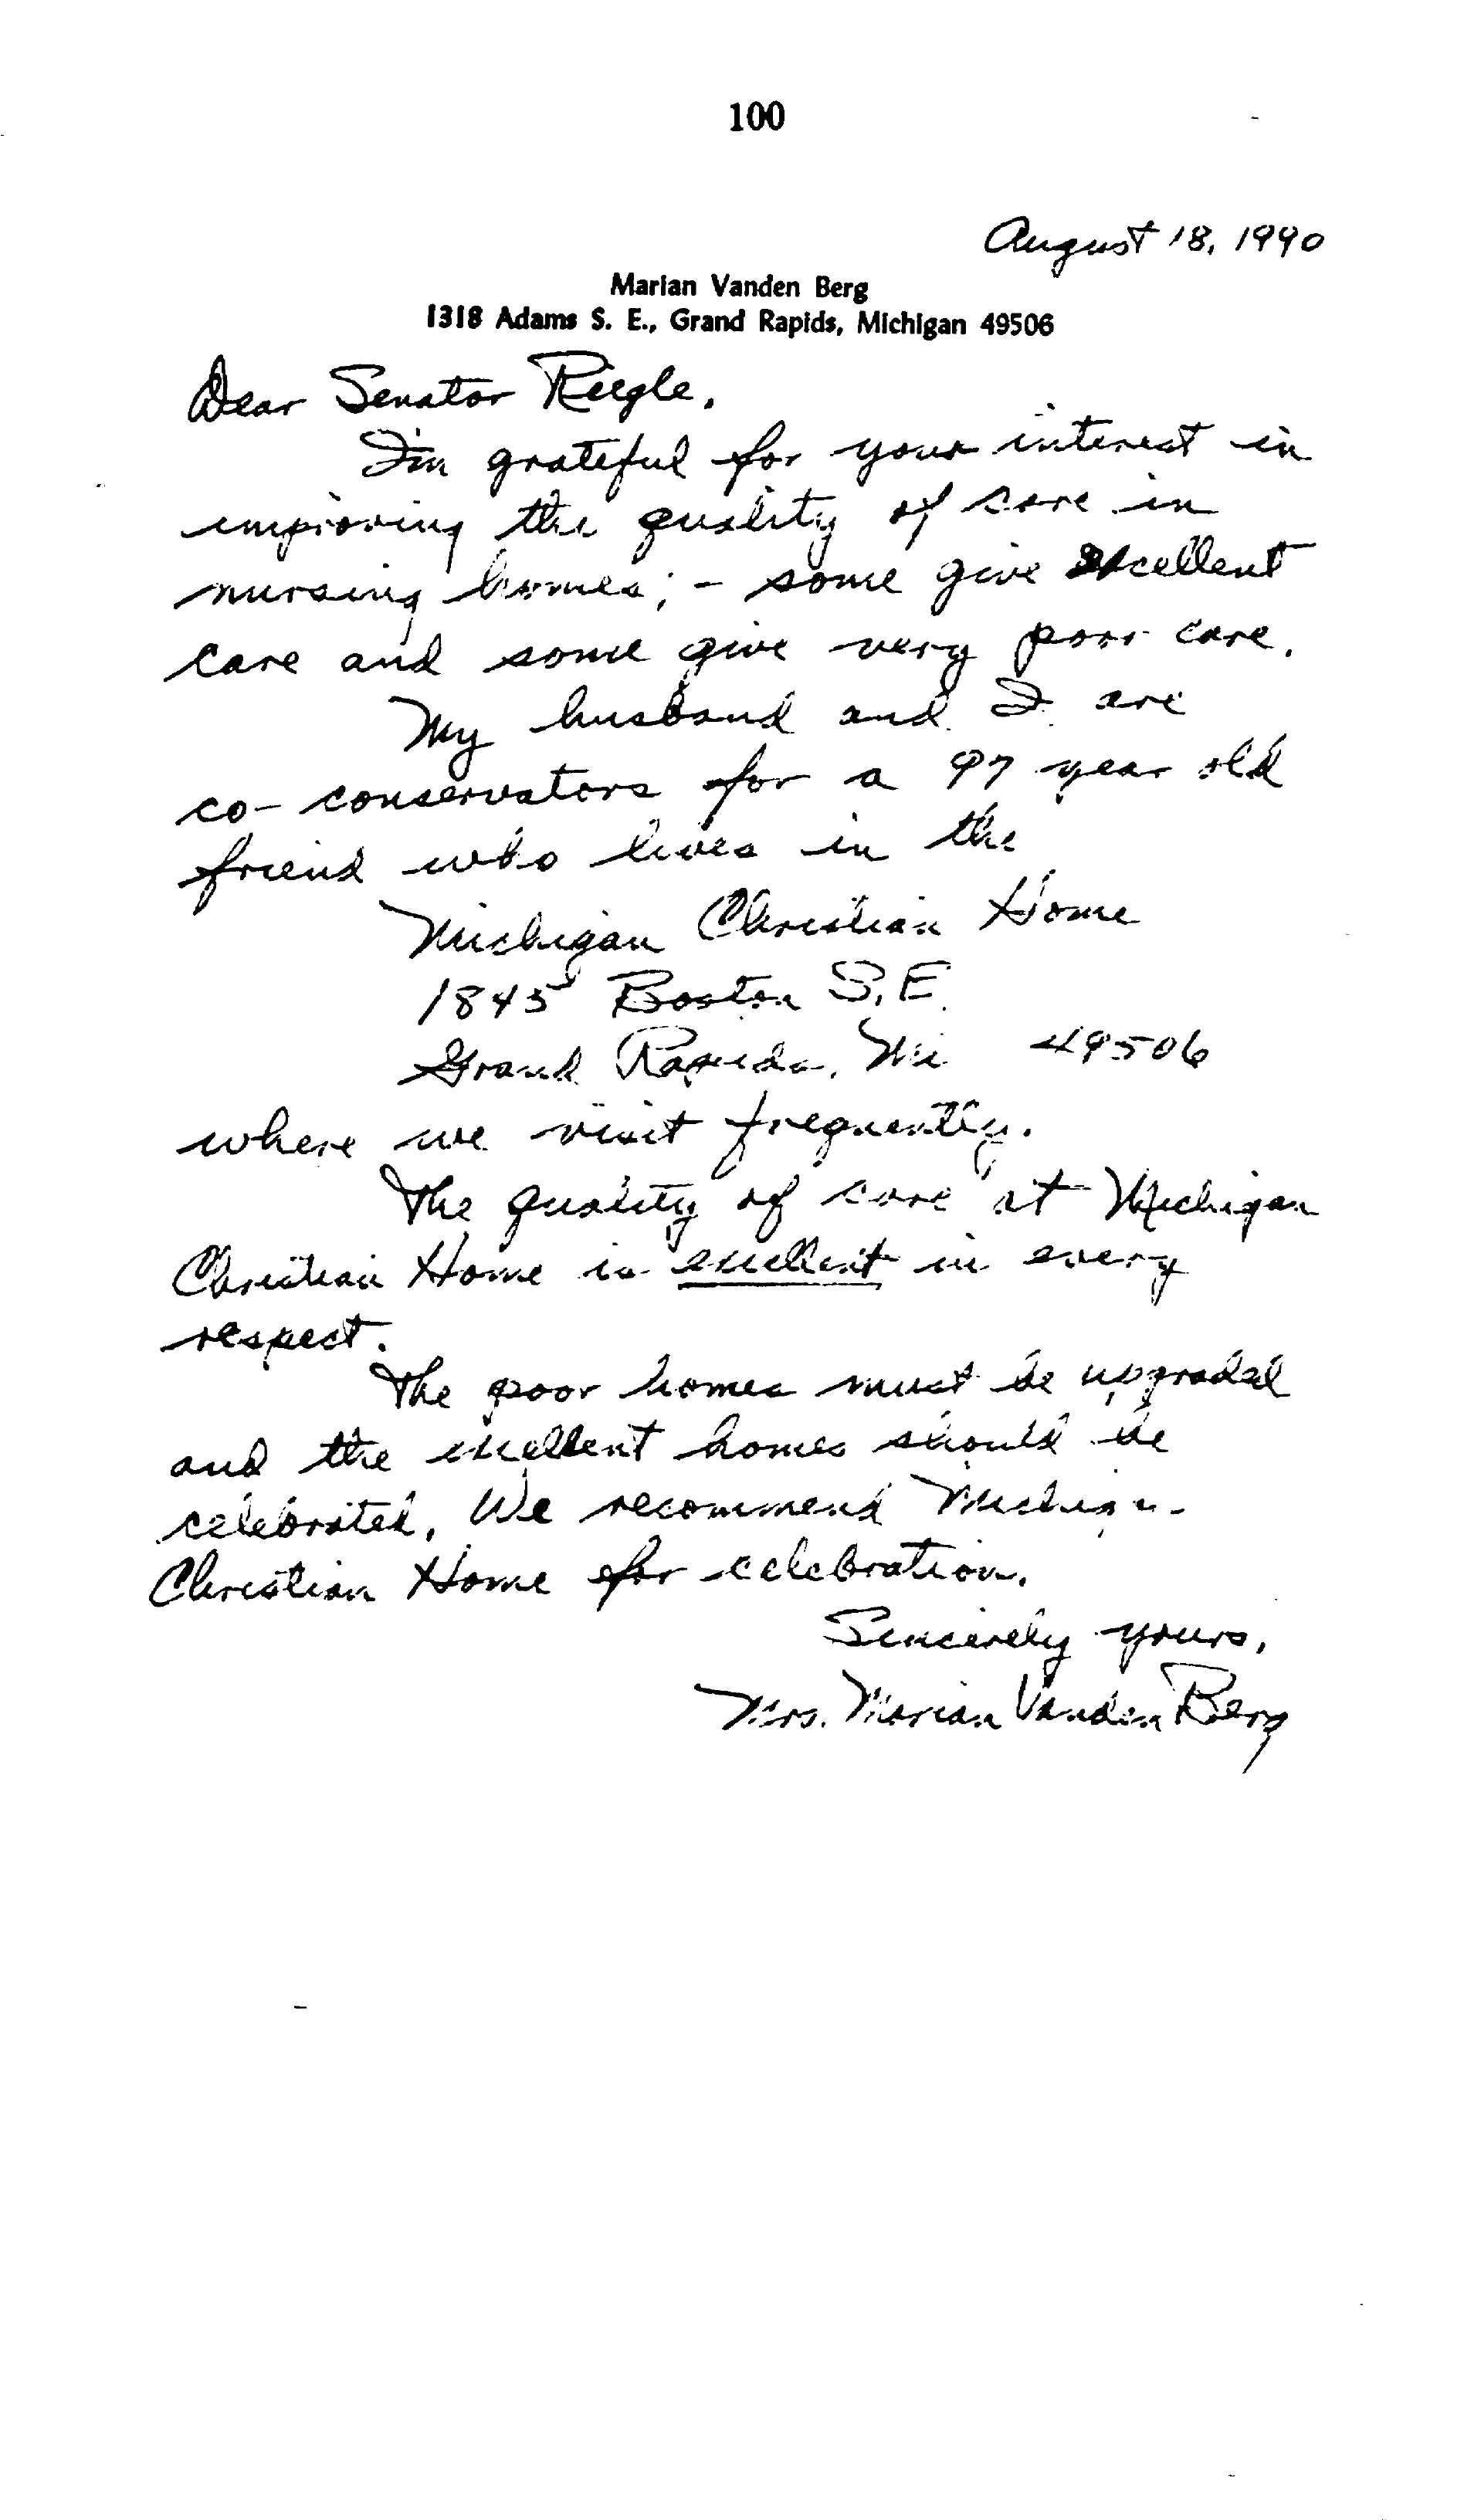 100
August 18, 1990
Marian Vanden Berg
1318 Adams S. E., Grand Rapids, Michigan 49506
Dear Senator Riegle,
I'm grateful for your interest in
improving the quality of care in
nursing homes; - some give excellent
care and some give very poor care.
My husband and I are
co-conservators for a 97 year old
friend who lives in the
Michigan Christian Home
1845 Boston S.E.
Grand Rapids, Mi 49506
where we visit frequently.
The quality of care at Michigan
Christian Home is excellent in every
respect.
The poor homes must be upgraded
and the excellent homes should be
celebrated. We recommend Michigan
Christian Home for celebration.
Sincerely yours,
Mrs. Marian Vanden Berg